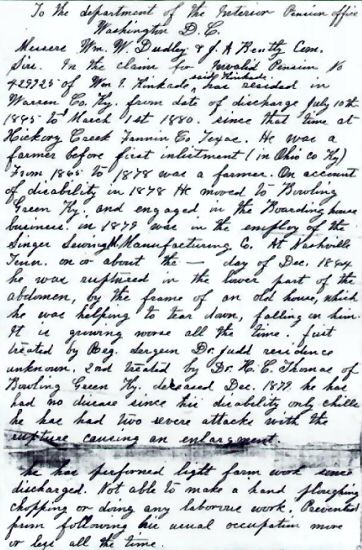 To the department of the Interior Pension office
Washington D.C.
Messers Wm. W. Dudley & J. A. Bently Com.
Sirs. In the claim for Invalid Pension No
429725 of Wm T. Kinkade, said Kinkade has resided in
Warren Co. Ky. from date of discharge July 10th
1865 to March 1st 1880. since that time at
Hickory Creek Fannin Co Texas. He was a
farmer before first inlistment (in Ohio co Ky)
From 1865 to 1878 was a farmer. On account
of disability in 1878 He moved to Bowling
Green Ky. and engaged in the Boarding house
business. in 1879 was in the employ of the
Singer Sewing M. Manufacturing Co. At Nashville
Tenn. on or about the — day of Dec. 1864
he was ruptured in the lower part of the
abdomen, by the frame of an old house, which
he was helping to tear down, falling on him.
It is growing worse all the time. first
treated by Reg. Sergeon Dr. Judd residence
unknown. 2nd treated by Dr. H. C. Thomas of
Bowling Green Ky. deceased Dec. 1879. he has
had no disease since his disability only chills
he has had two severe attacks with the
rupture causing an enlargment.
he has preformed light farm work since
discharged. Not able to make a hand ploughing
chopping or doing any laborous work. Prevented
from following his usual occupation more
or less all the time.